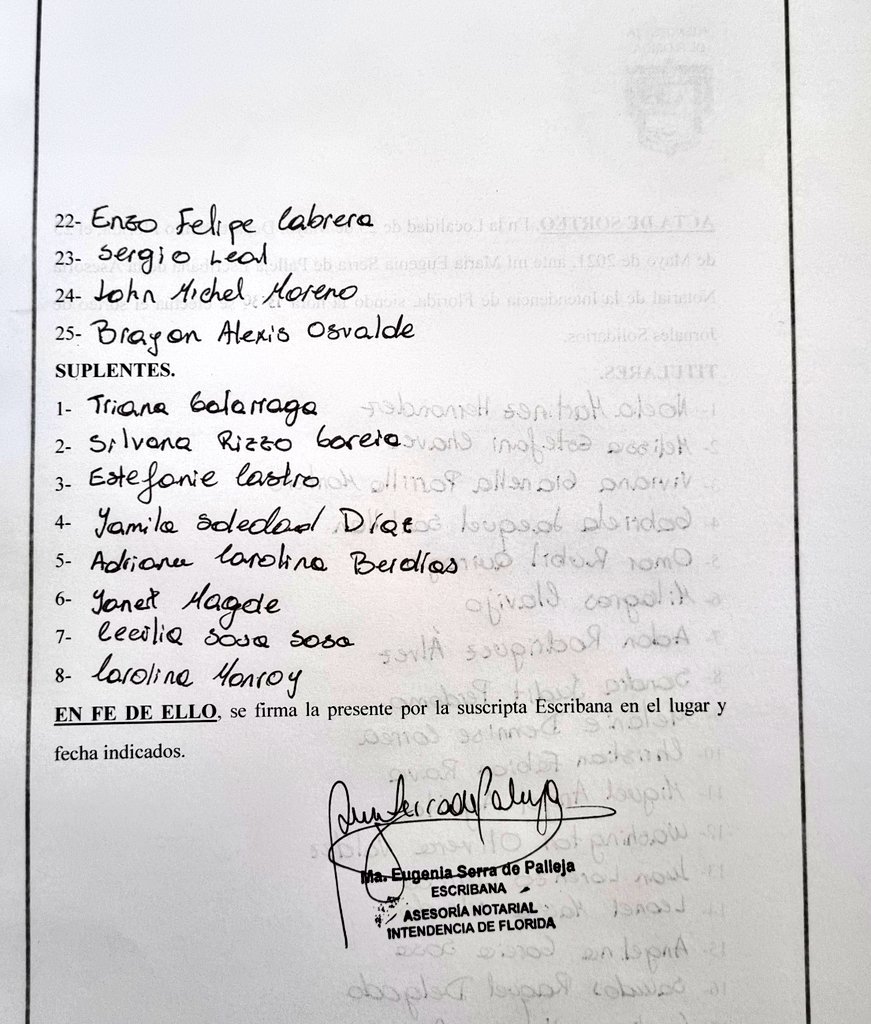 22- Enzo Felipe Cabrera
23- Sergio Leal
24- John Michel Moreno
25- Brayon Alexis Osvalde
SUPLENTES.
1- Triana Galarraga
2- Silvana Rizzo Goreia
3- Estefanie Castro
4- Yamila Soledad Díaz
5- Adriana Carolina Berdías
6- Yanet Magede
7- Cecilia Sosa Sosa
8- Carolina Monroy
EN FE DE ELLO, se firma la presente por la suscripta Escribana en el lugar y
fecha indicados.
Ma. Eugenia Serra de Palleja
ESCRIBANA
ASESORÍA NOTARIAL
INTENDENCIA DE FLORIDA